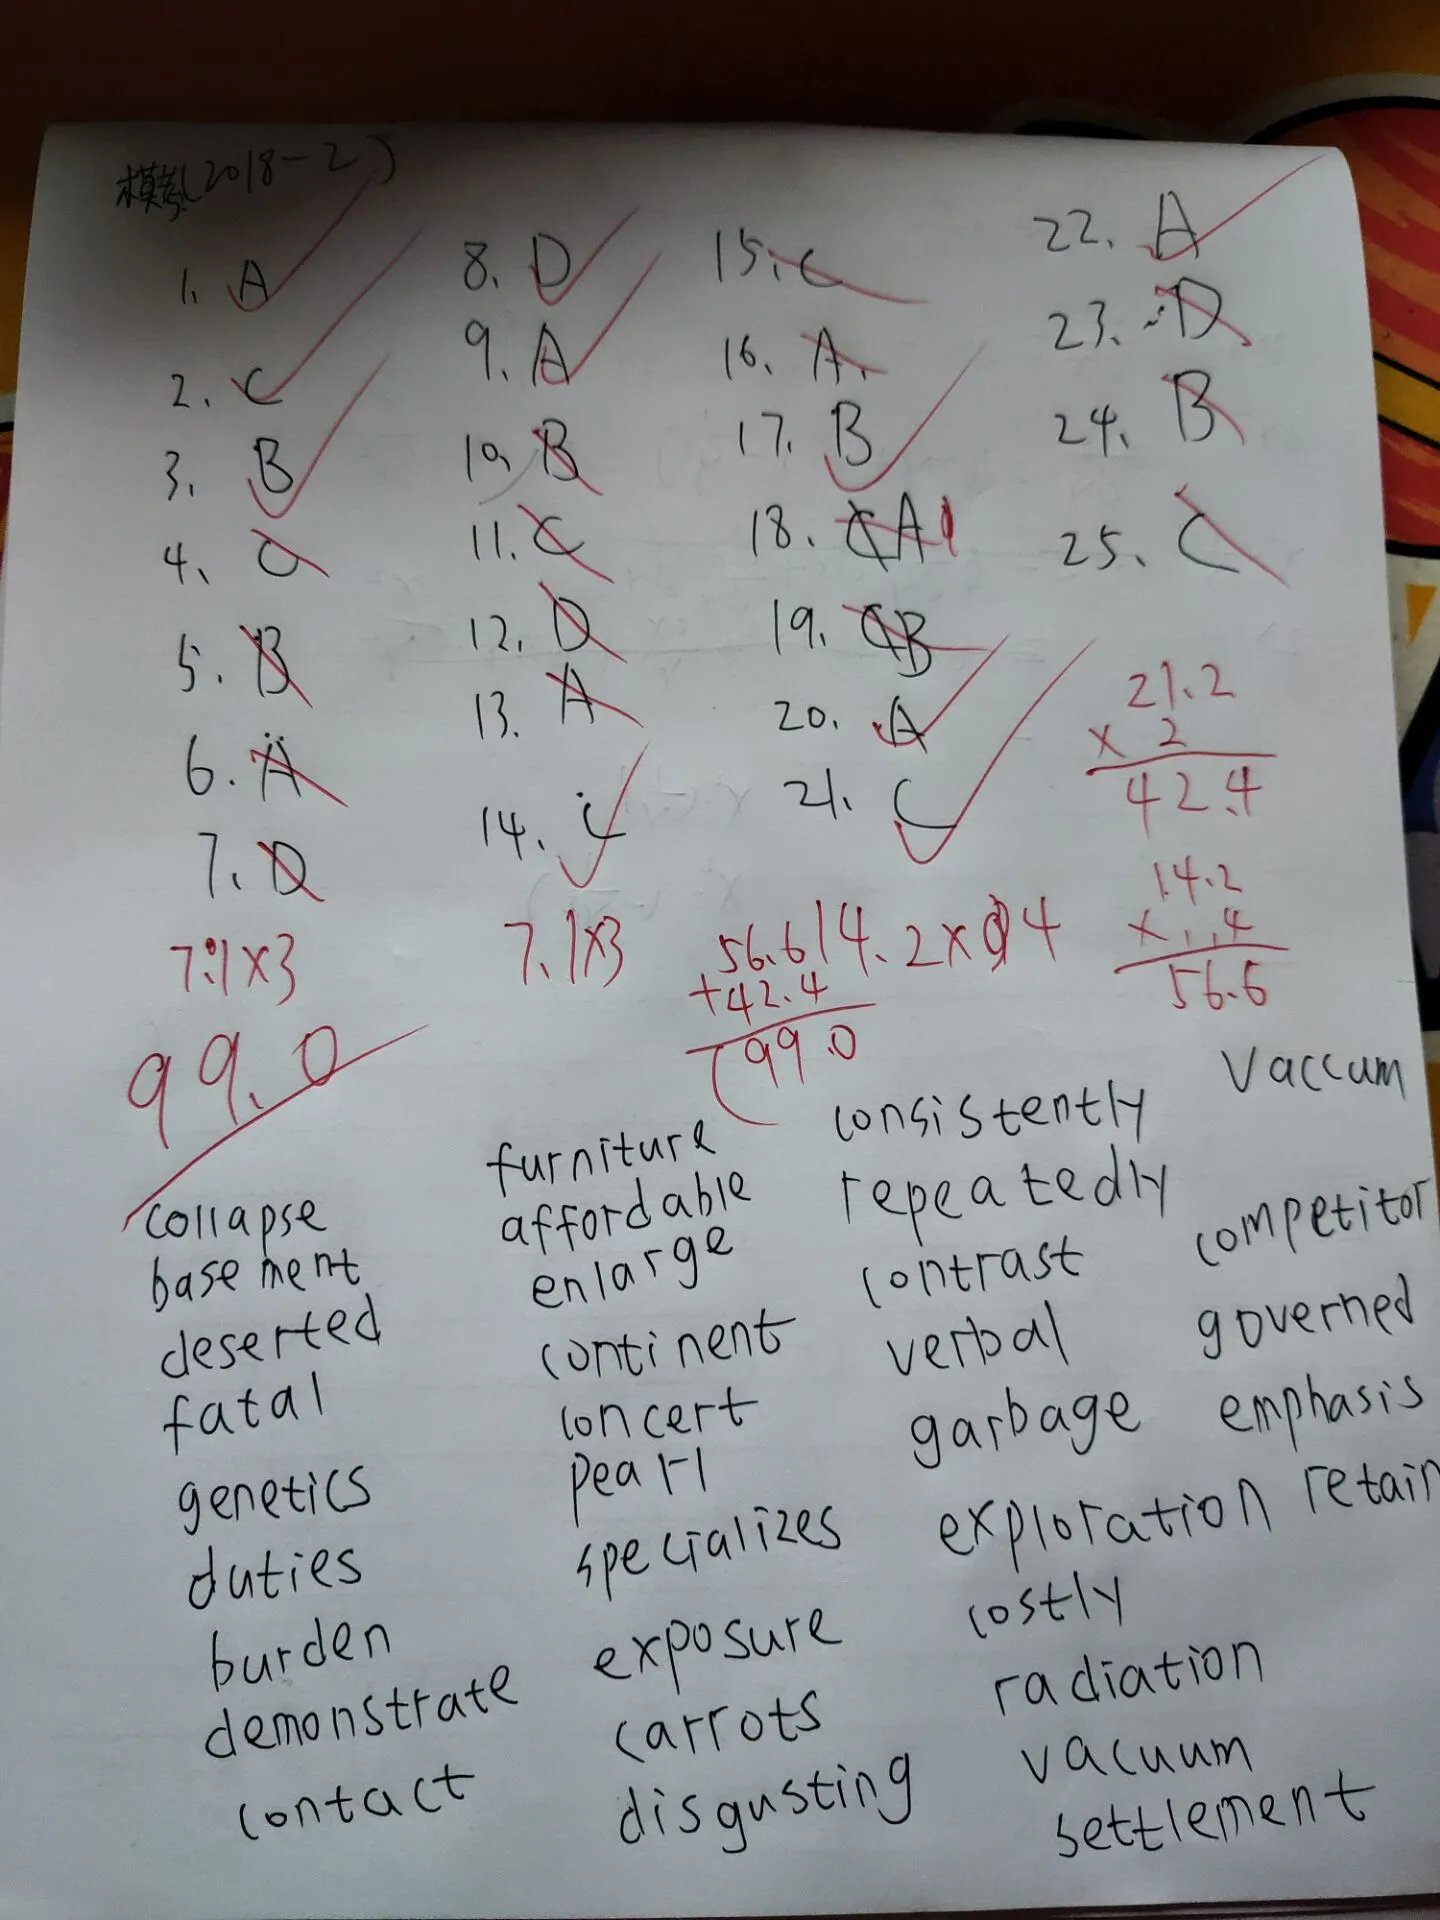 模拟(2018-2)
1. A
2. C
3. B
4. C
5. B
6. A
7. D
7.1×3
8. D
9. A
10. B
11. C
12. D
13. A
14. C
7.1×3
15. C
16. A.
17. B
18. A
19. B
20. A
21. C
14.2×4
22. A
23. D
24. B
25. C
21.2
× 2
42.4
14.2
× 4
56.6
56.6
+42.4
99.0
99.0
collapse
basement
deserted
fatal
genetics
duties
burden
demonstrate
contact
furniture
affordable
enlarge
continent
concert
pearl
specializes
exposure
carrots
disgusting
consistently
repeatedly
contrast
verbal
garbage
exploration
costly
radiation
vacuum
settlement
vaccum
competitor
governed
emphasis
retain